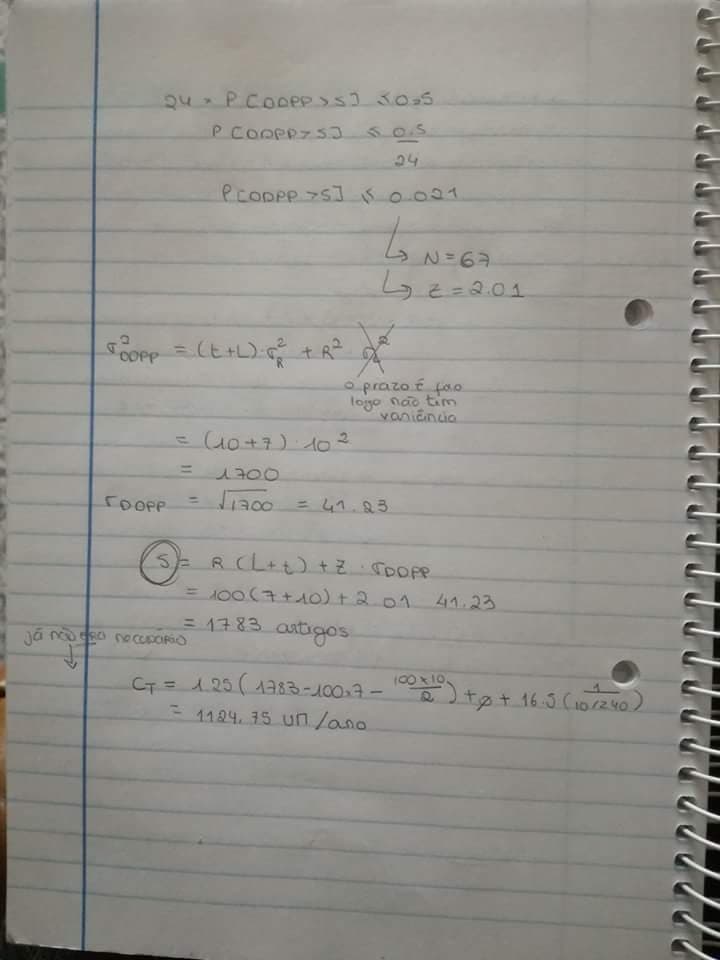 24 × P[DDPP>S] ≤ 0.5
P[DDPP>S] ≤ 0.5/24
P[DDPP>S] ≤ 0.021
↳ N=67
↳ Z=2.01
σ²DDPP = (t+L)·σ²R + R² · σ²
o prazo é fixo
logo não tem
variância
= (10+7)·10²
= 1700
σDDPP = √1700 = 41.23
S = R(L+t)+Z·σDDPP
= 100(7+10)+2.01 41.23
= 1783 artigos
já não era necessário
↓
CT = 1.25(1783-100×7 - 100×10/2) + ø + 16.5(1/10/240)
= 1124.75 UM/ano